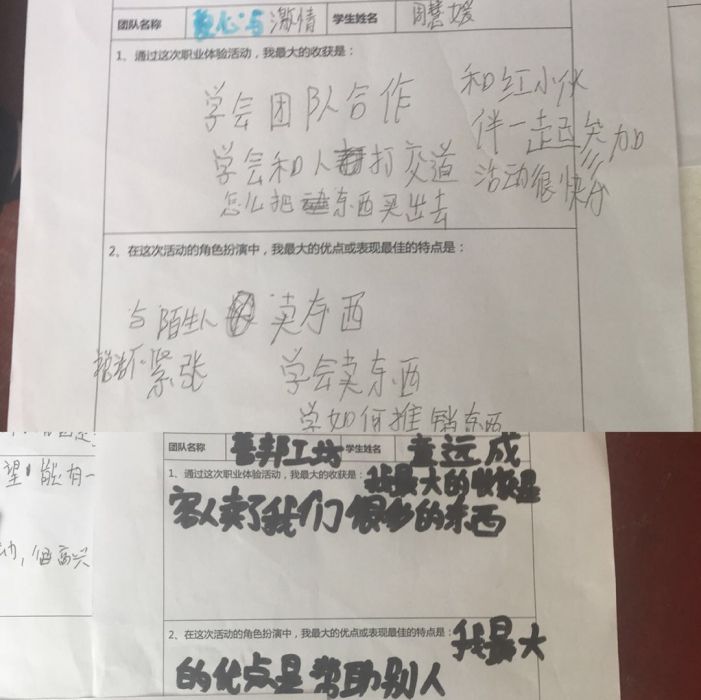 团队名称 爱心与激情 学生姓名 周慧媛
1、通过这次职业体验活动，我最大的收获是：
学会团队合作
学会和人打交道
怎么把东西买出去
和红小伙
伴一起参加
活动很快乐
2、在这次活动的角色扮演中，我最大的优点或表现最佳的特点是：
与陌生人 卖东西
不紧张 学会卖东西
学如何推销东西
望 能有一
动，但高兴
团队名称 善邦工坊 学生姓名 童远成
1、通过这次职业体验活动，我最大的收获是：我最大的收获是
客人卖了我们很多的东西
2、在这次活动的角色扮演中，我最大的优点或表现最佳的特点是：我最大
的优点是帮助别人